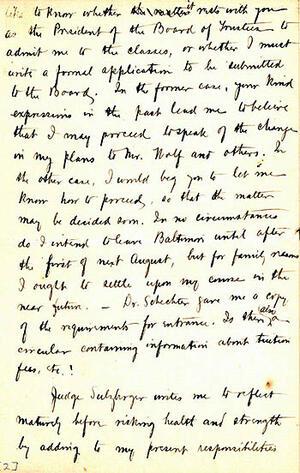 like to know whether it rests with you
as the President of the Board of Trustees to
admit me to the classes, or whether I must
write a formal application to be submitted
to the Board. In the former case, your kind
expressions in the past lead me to believe
that I may proceed to speak of the change
in my plans to Mr. Wolf and others. In
the other case, I would beg you to let me
know how to proceed, so that the matter
may be decided soon. In no circumstances
do I intend to leave Baltimore until after
the first of next August, but for family reasons
I ought to settle upon my course in the
near future. — Dr. Schechter gave me a copy
of the requirements for entrance. Is there also a
circular containing information about tuition
fees, etc.?
Judge Sulzberger writes me to reflect
maturely before risking health and strength
by adding to my present responsibilities
[2]